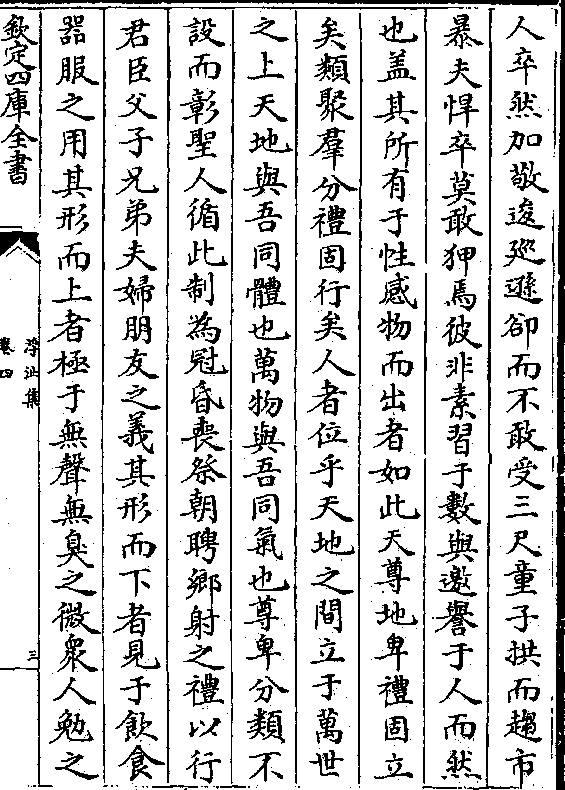 人卒然加敬逡廵遜卻而不敢受三尺童子拱而趨市
暴夫悍卒莫敢狎焉彼非素習于數與邀譽于人而然
也盖其所有于性感物而出者如此天尊地卑禮固立
矣類聚羣分禮固行矣人者位乎天地之間立于萬世
之上天地與吾同體也萬物與吾同氣也尊卑分類不
設而彰聖人循此制為冠昏喪祭朝聘鄉射之禮以行
君臣父子兄弟夫婦朋友之義其形而下者見于飲食
器服之用其形而上者極于無聲無臭之微衆人勉之
欽定四庫全書
浮沚集
卷四
三